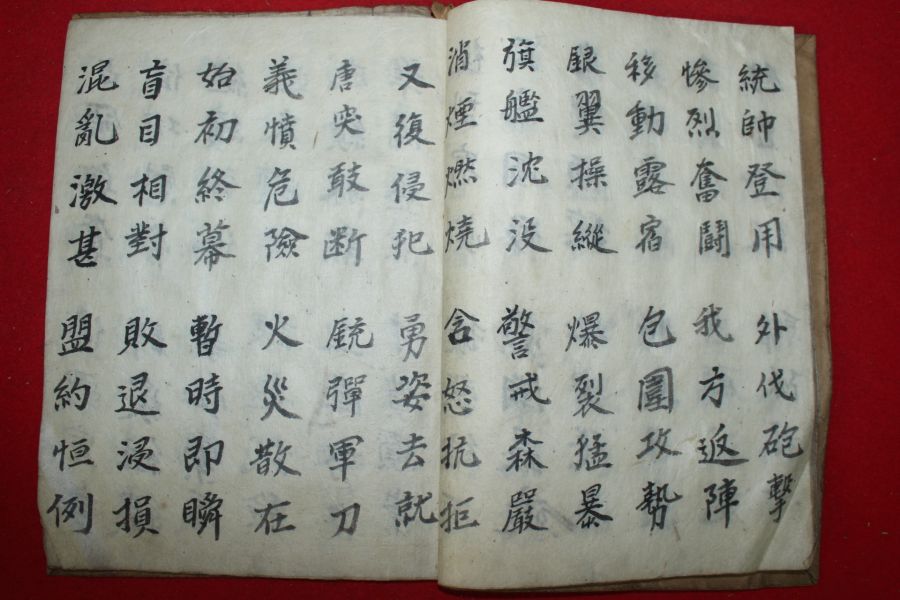 統帥登用 外伐砲撃
慘烈奮鬪 我方返陣
移動露宿 包圍攻勢
銀翼操縱 爆裂猛暴
旗艦沈没 警戒森嚴
消煙燃燒 含怒抗拒
又復侵犯 勇姿去就
唐突敢断 銃彈軍刀
義憤危險 火災散在
始初終幕 暫時即瞬
盲目相對 敗退浸損
混亂激甚 盟約恒例